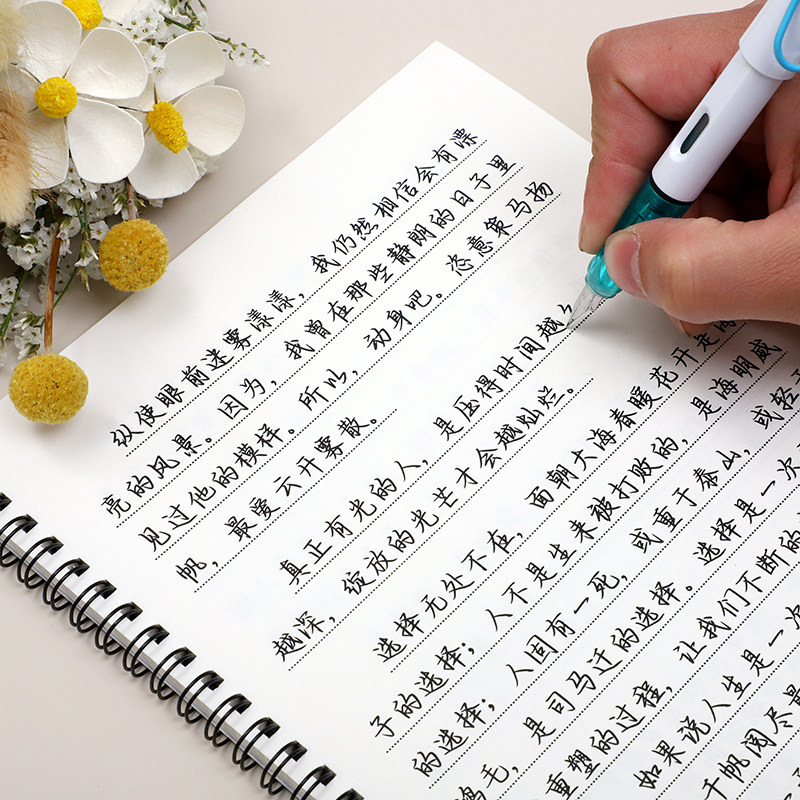 纵使眼前迷雾漾漾，我仍然相信会有漂
亮的风景。因为，我曾在那些静朗的日子里
见过他的模样。所以，动身吧。恣意策马扬
帆，最爱云开雾散。
真正有光的人，是压得时间越
越深，绽放的光芒才会越灿烂。
选择无处不在，面朝大海春暖花开是海
子的选择；人不是生来被打败的，是海明威
的选择；人固有一死，或重于泰山，或轻于
鸿毛，是司马迁的选择。选择是一次
重塑的过程，让我们不断的
如果说人生是一次
千帆阅尽最